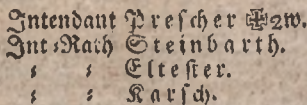 Intendant Prescher ✠2w.
Int⸗Rath Steinbarth.
⸗ ⸗ Eltester.
⸗ ⸗ Karsch.